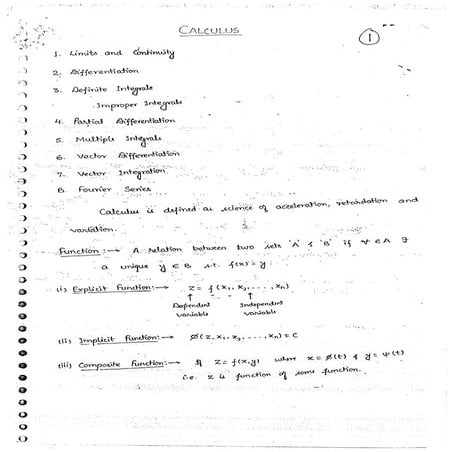 CALCULUS
1
1. Limits and Continuity
2. Differentiation
3. Definite Integrals
Improper Integrals
4. Partial Differentiation
5. Multiple Integrals
6. Vector Differentiation
7. Vector Integration
8. Fourier Series
Calculus is defined as science of acceleration, retardation and
variation.
Function :→ A relation between two sets 'A' & 'B' if ∀ x ∈ A ∃
a unique y ∈ B s.t. f(x) = y.
(i) Explicit Function:→ z = f(x₁, x₂, ...., xₙ)
↑ ↑
Dependent Independent
variable variable
(ii) Implicit Function:→ ∅(z, x₁, x₂, ...., xₙ) = c
(iii) Composite Function:→ If z = f(x,y) where x = ∅(t) & y = ψ(t)
i.e. z is function of some function.